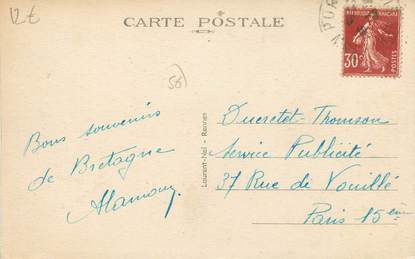 12 €
CARTE POSTALE
REPUBLIQUE FRANÇAISE
30 c
POSTES
POR
56
Bons souvenirs
de Bretagne
Laurent-Nel - Rennes
Ducretet-Thomson
Service Publicité
37 Rue de Vouillé
Paris 15ème